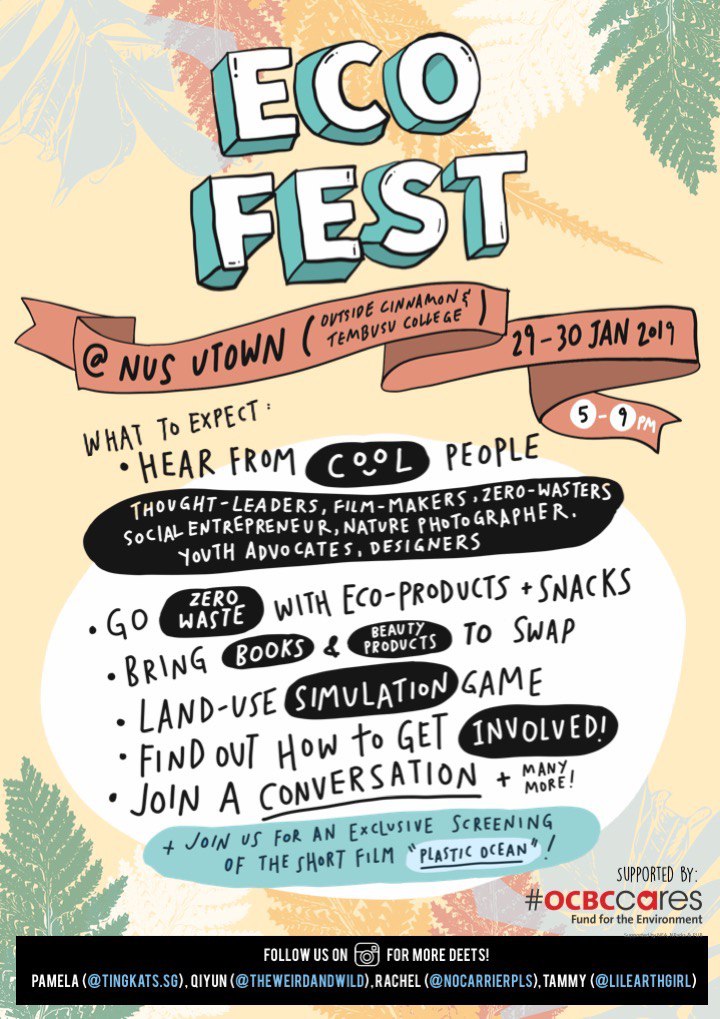 ECO
FEST
@ NUS UTOWN (OUTSIDE CINNAMON &
TEMBUSU COLLEGE)
29-30 JAN 2019
5-9PM
WHAT TO EXPECT:
• HEAR FROM COOL PEOPLE
THOUGHT-LEADERS, FILM-MAKERS, ZERO-WASTERS
SOCIAL ENTREPRENEUR, NATURE PHOTOGRAPHER.
YOUTH ADVOCATES, DESIGNERS
• GO ZERO WASTE WITH ECO-PRODUCTS + SNACKS
• BRING BOOKS & BEAUTY PRODUCTS TO SWAP
• LAND-USE SIMULATION GAME
• FIND OUT HOW TO GET INVOLVED!
• JOIN A CONVERSATION + MANY MORE!
+ JOIN US FOR AN EXCLUSIVE SCREENING
OF THE SHORT FILM "PLASTIC OCEAN"!
SUPPORTED BY:
#OCBCCares
Fund for the Environment
FOLLOW US ON FOR MORE DEETS!
PAMELA (@TINGKATS.SG), QIYUN (@THEWEIRDANDWILD), RACHEL (@NOCARRIERPLS), TAMMY (@LILEARTHGIRL)